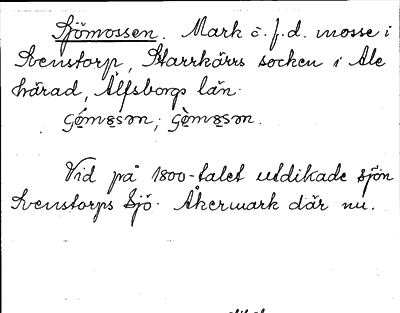 Sjömossen. Mark å f.d. mosse i
Svenstorp, Starrkärrs socken i Ale
härad, Älfsborgs län.
Vid på 1800-talet utdikade sjön
Svenstorps sjö. Åkermark där nu.